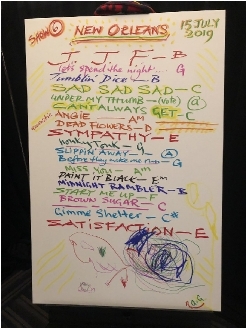 SHOW
NEW ORLEANS
15 JULY
2019
J. J. F. – B
Let's spend the night... – G
Tumblin' Dice – B
SAD SAD SAD – C
UNDER MY THUMB – (VOTE) A
CANT ALWAYS GET – C
ANGIE – Am
DEAD FLOWERS – D
SYMPATHY – E
Honky Tonk – G
SLIPPIN' AWAY – A
Before they make me run – G
MISS YOU – Am
PAINT IT BLACK – Em
MIDNIGHT RAMBLER – B
START ME UP – F
BROWN SUGAR – C
Gimme Shelter – C#
SATISFACTION – E